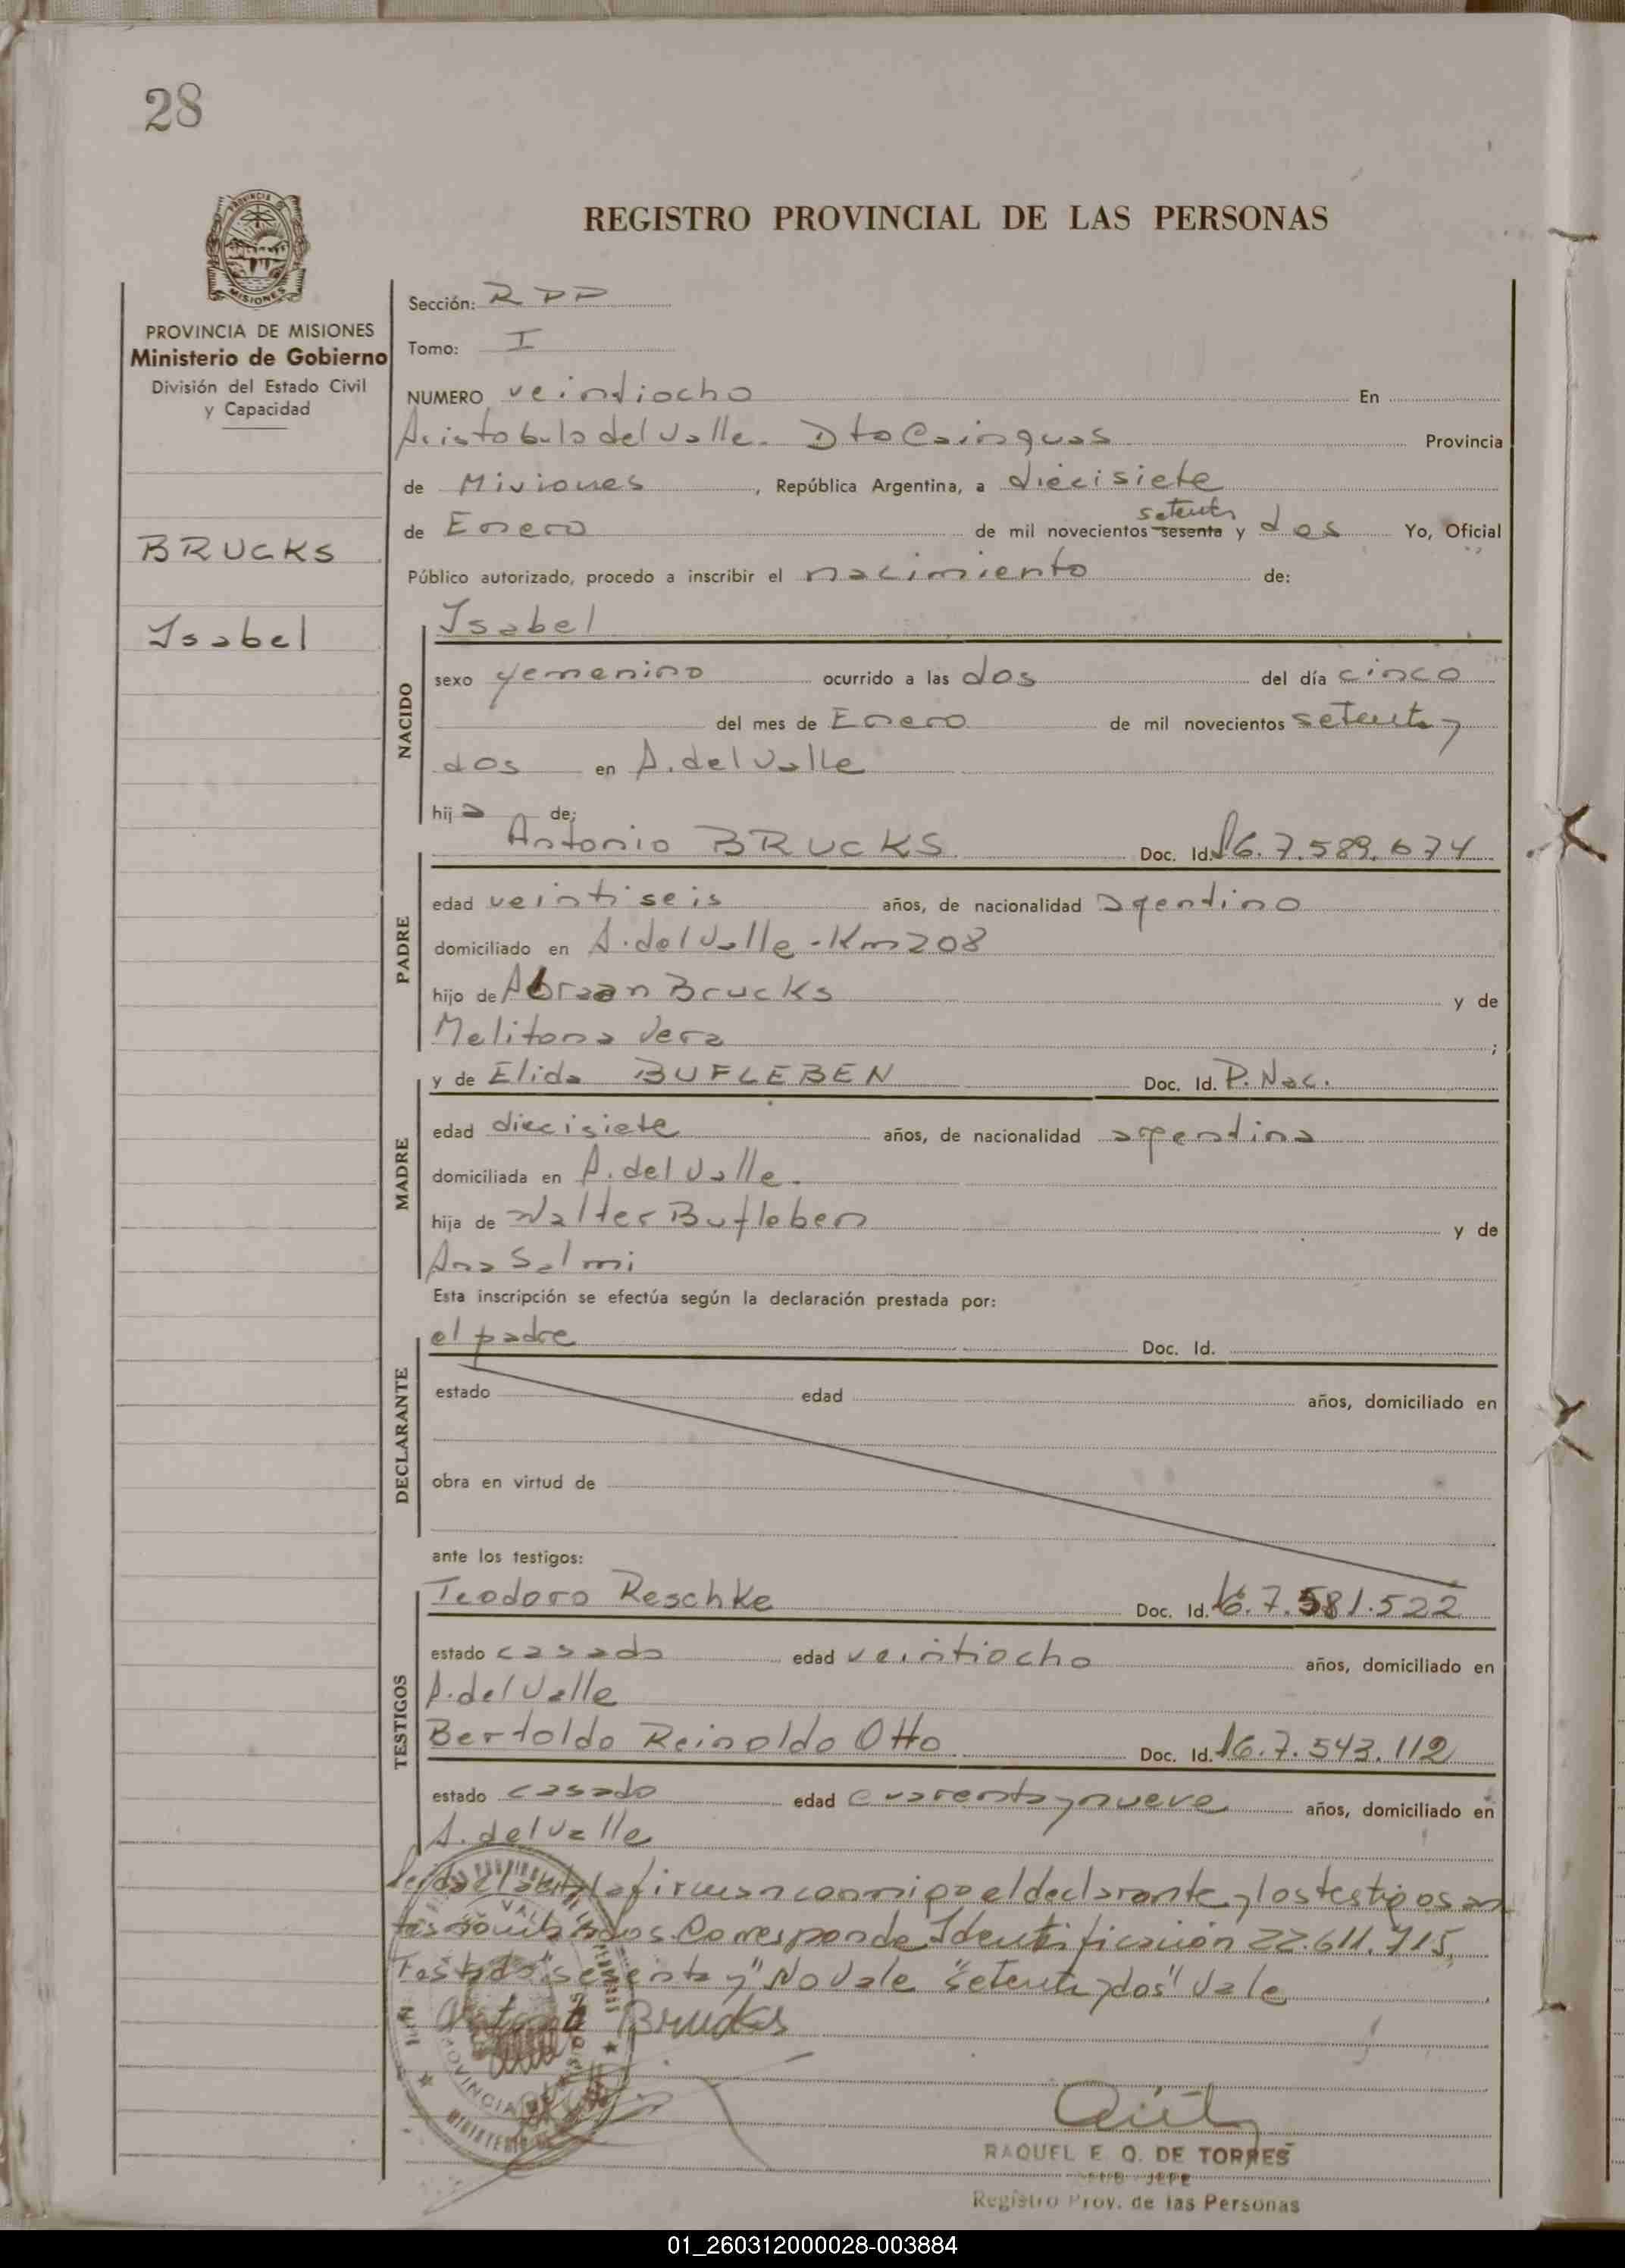 28
REGISTRO PROVINCIAL DE LAS PERSONAS
PROVINCIA DE MISIONES
Ministerio de Gobierno
División del Estado Civil
y Capacidad
BRUCKS
Isabel
Sección: RDP
Tomo: I
NUMERO veintiocho En
Aristobulo del Valle. Dto Cainguas Provincia
de Misiones, República Argentina, a diecisiete
setenta
de Enero de mil novecientos sesenta y dos Yo, Oficial
Público autorizado, procedo a inscribir el nacimiento de:
Isabel
NACIDO
sexo femenino ocurrido a las dos del día cinco
del mes de Enero de mil novecientos setenta y
dos en A. del Valle
hija de:
Antonio BRUCKS Doc. Id. 7.589.674
PADRE
edad veintiseis años, de nacionalidad agentino
domiciliado en A. del Valle - Km 208
hijo de Abraan Brucks y de
Melitona Vera ;
y de Elida BUFLEBEN Doc. Id. P. Nac.
MADRE
edad diecisiete años, de nacionalidad agentina
domiciliada en A. del Valle.
hija de Walter Bufleben y de
Ana Salmi
Esta inscripción se efectúa según la declaración prestada por:
el padre Doc. Id.
DECLARANTE
estado edad años, domiciliado en
obra en virtud de
ante los testigos:
Teodoro Reschke Doc. Id. 7.581.522
TESTIGOS
estado casado edad veintiocho años, domiciliado en
A. del Valle
Bertoldo Reinoldo Otto Doc. Id. 7.543.112
estado casado edad cuarenta y nueve años, domiciliado en
A. del Valle
Leida el acta la firman conmigo el declarante y los testigos an
tes nombrados. Corresponde Identificación 22.611.715.
Testado "sesenta y" No Vale "setenta y dos" Vale
Antonio Brucks
RAQUEL E. O. DE TORRES
SUB - JEFE
Registro Prov. de las Personas
01_260312000028-003884